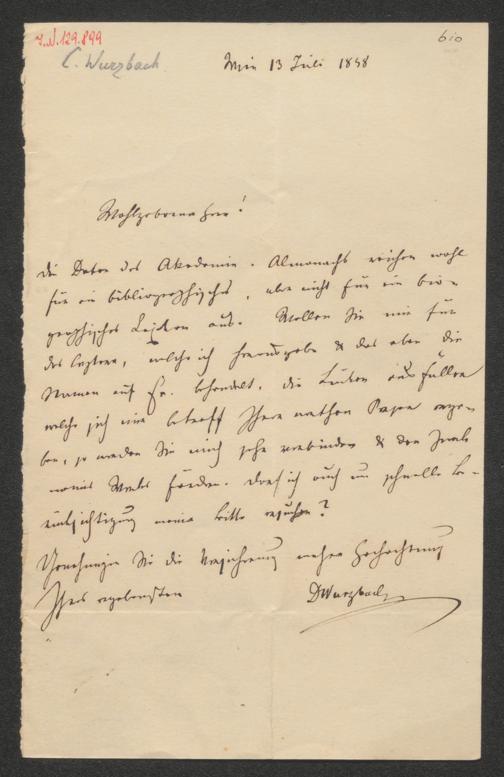 J.N. 129.899
bio
C. Wurzbach
Wien 13 Juli 1858
Wohlgeborner Herr!
Die Daten des Akademie-Almanachs reichen wohl
für ein bibliographisches, aber nicht für ein bio-
graphisches Lexikon aus. Wollen Sie mir für
das letztere, welches ich herausgebe & das eben die
Namen auf Fr. behandelt, die Lücken ausfüllen
welche sich mir betreff Ihrer werthen Person erge-
ben, so werden Sie mich sehr verbinden & den Zweck
meines Werkes fördern. Darf ich auch um schnelle Be-
rücksichtigung meiner Bitte ersuchen?
Genehmigen Sie die Versicherung meiner Hochachtung
Ihres ergebensten
DWurzbach